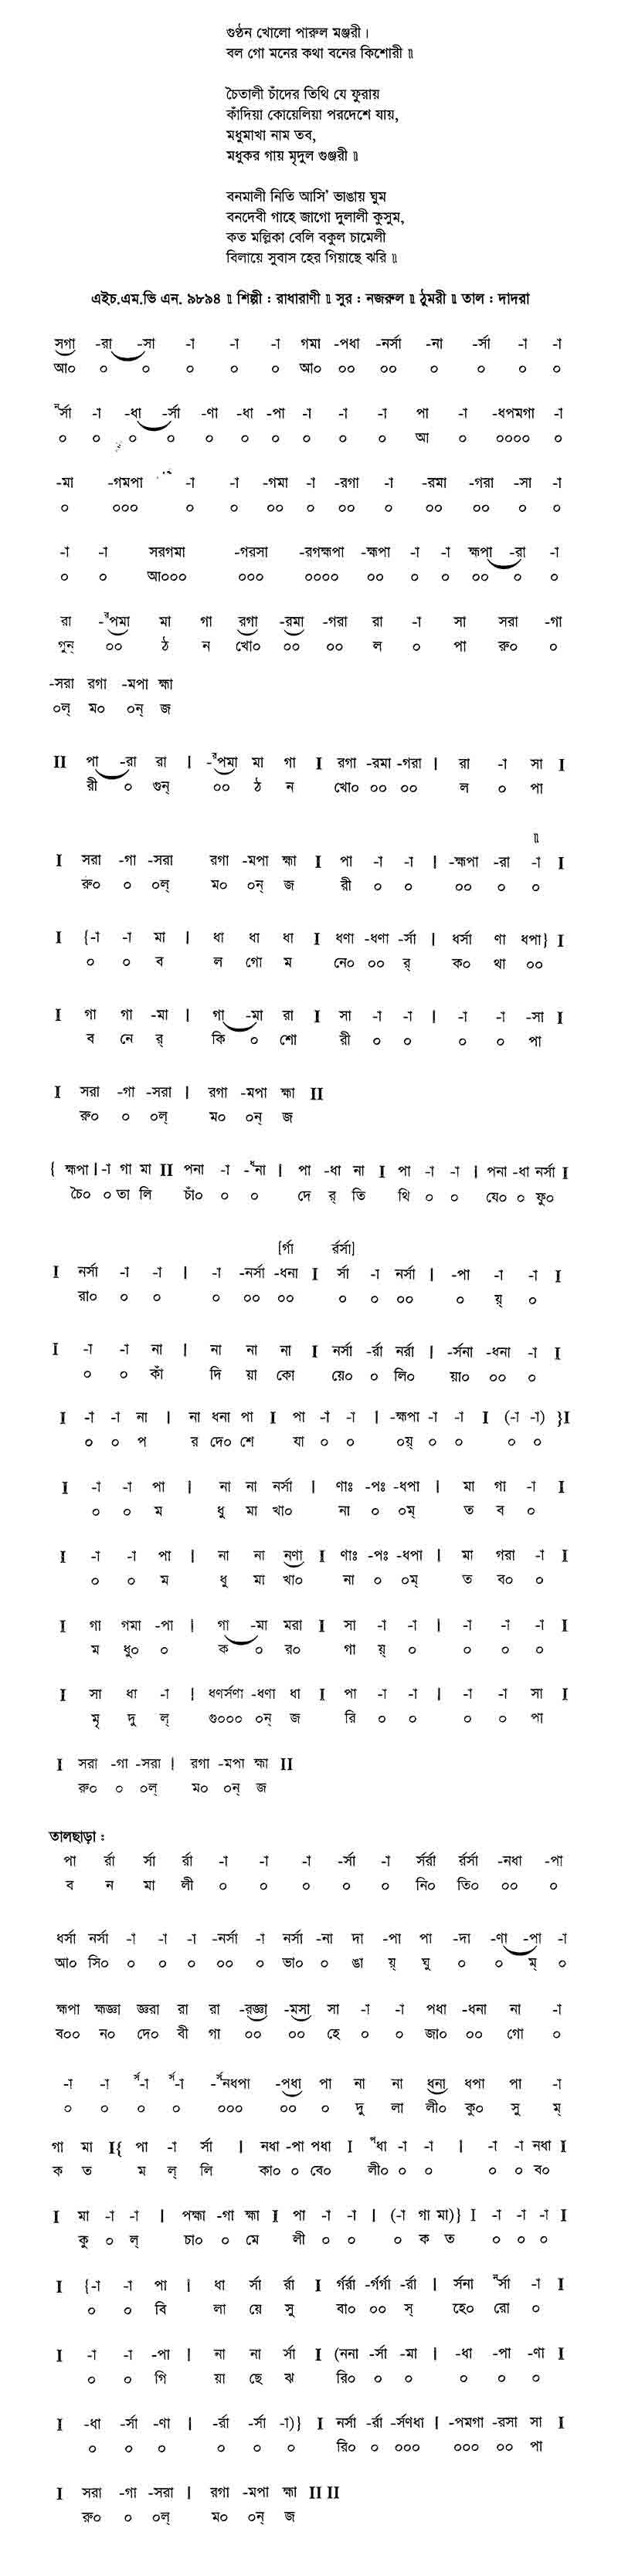 গুণ্ঠন খোলো পারুল মঞ্জরী।
বল গো মনের কথা বনের কিশোরী ॥
চৈতালী চাঁদের তিথি যে ফুরায়
কাঁদিয়া কোয়েলিয়া পরদেশে যায়,
মধুমাখা নাম তব,
মধুকর গায় মৃদুল গুঞ্জরী ॥
বনমালী নিতি আসি' ভাঙায় ঘুম
বনদেবী গাহে জাগো দুলালী কুসুম,
কত মল্লিকা বেলি বকুল চামেলী
বিলায়ে সুবাস হের গিয়াছে ঝরি ॥
এইচ.এম.ভি এন. ৯৮৯৪ ॥ শিল্পী : রাধারাণী ॥ সুর : নজরুল ॥ ঠুমরী ॥ তাল : দাদরা
সগা -রা -সা -া -া -া গমা -পধা -নর্সা -না -র্সা -া -া
আ০ ০ ০ ০ ০ ০ আ০ ০০ ০০ ০ ০ ০ ০
নর্সা -া -ধা -র্সা -ণা -ধা -পা -া -া -া পা -া -ধপমগা -া
০ ০ ০ ০ ০ ০ ০ ০ ০ ০ আ ০ ০০০০ ০
-মা -গমপা -া -া -গমা -া -রগা -া -রমা -গরা -সা -া
০ ০০০ ০ ০ ০০ ০ ০০ ০ ০০ ০০ ০ ০
-া -া সরগমা -গরসা -রগহ্মপা -হ্মপা -া -া হ্মপা -রা -া
০ ০ আ০০০ ০০০ ০০০০ ০০ ০ ০ ০০ ০ ০
রা -রপমা মা গা রগা -রমা -গরা রা -া সা সরা -গা
গুন্ ০০ ঠ ন খো০ ০০ ০০ ল ০ পা রু০ ০
-সরা রগা -মপা হ্মা
০ল্ ম০ ০ন্ জ
II পা -রা রা | -রপমা মা গা I রগা -রমা -গরা | রা -া সা I
রী ০ গুন্ ০০ ঠ ন খো০ ০০ ০০ ল ০ পা
॥
I সরা -গা -সরা রগা -মপা হ্মা I পা -া -া | -হ্মপা -রা -া I
রু০ ০ ০ল্ ম০ ০ন্ জ রী ০ ০ ০০ ০ ০
I {-া -া মা | ধা ধা ধা I ধণা -ধণা -র্সা | ধর্সা ণা ধপা} I
০ ০ ব ল গো ম নে০ ০০ র্ ক০ থা ০০
I গা গা -মা | গা -মা রা I সা -া -া | -া -া -সা I
ব নে র্ কি ০ শো রী ০ ০ ০ ০ পা
I সরা -গা -সরা | রগা -মপা হ্মা II
রু০ ০ ০ল্ ম০ ০ন্ জ
{ হ্মপা | -া গা মা II পনা -া -ধনা | পা -ধা না I পা -া -া | পনা -ধা নর্সা I
চৈ০ ০ তা লি চাঁ০ ০ ০ দে র্ তি থি ০ ০ যে০ ০ ফু০
[র্গা র্রর্সা]
I নর্সা -া -া | -া -নর্সা -ধনা I র্সা -া নর্সা | -পা -া -া I
রা০ ০ ০ ০ ০০ ০০ ০ ০ ০০ ০ য়্ ০
I -া -া না | না না না I নর্সা -র্রা নর্রা | -র্সনা -ধনা -া I
০ ০ কাঁ দি য়া কো য়ে০ ০ লি০ য়া০ ০০ ০
I -া -া না | না ধনা পা I পা -া -া | -হ্মপা -া -া I (-া -া) }I
০ ০ প র দে০ শে যা ০ ০ ০য়্ ০ ০ ০ ০
I -া -া পা | না না নর্সা | ণাঃ -পঃ -ধপা | মা গা -া I
০ ০ ম ধু মা খা০ না ০ ০ম্ ত ব ০
I -া -া পা | না না নণা I ণাঃ -পঃ -ধপা | মা গরা -া I
০ ০ ম ধু মা খা০ না ০ ০ম্ ত ব০ ০
I গা গমা -পা | গা -মা মরা I সা -া -া | -া -া -া I
ম ধু০ ০ ক ০ র০ গা য়্ ০ ০ ০ ০
I সা ধা -া | ধণর্সণা -ধণা ধা I পা -া -া | -া -া সা I
মৃ দু ল্ গু০০০ ০ন্ জ রি ০ ০ ০ ০ পা
I সরা -গা -সরা | রগা -মপা হ্মা II
রু০ ০ ০ল্ ম০ ০ন্ জ
তালছাড়া :
পা র্রা র্সা র্রা -া -া -া -র্সা -া র্সর্রা র্রর্সা -নধা -পা
ব ন মা লী ০ ০ ০ ০ ০ নি০ তি০ ০০ ০
ধর্সা নর্সা -া -া -া -নর্সা -া নর্সা -না দা -পা পা -দা -ণা -পা -া
আ০ সি০ ০ ০ ০ ০০ ০ ভা০ ০ ঙা য়্ ঘু ০ ০ ম্ ০
হ্মপা হ্মজ্ঞা জ্ঞরা রা রা -রজ্ঞা -মসা সা -া -া পধা -ধনা না -া
ব০০ ন০ দে০ বী গা ০০ ০০ হে ০ ০ জা০ ০০ গো ০
-া -া র্স-া র্স-া -র্সনধপা -পধা পা না না ধনা ধপা পা -া
০ ০ ০ ০ ০০০ ০০ ০ দু লা লী০ কু০ সু ম্
গা মা I{ পা -া র্সা | নধা -পা পধা I পধা -া -া | -া -া নধা I
ক ত ম ল্ লি কা০ ০ বে০ লী০ ০ ০ ০ ০ ব০
I মা -া -া | পহ্মা -গা হ্মা I পা -া -া | (-া গা মা)} I -া -া -া I
কু ০ ল্ চা০ ০ মে লী ০ ০ ০ ক ত ০ ০ ০
I {-া -া পা | ধা র্সা র্রা I র্গর্রা -র্গর্গা -র্রা | র্সনা নর্সা -া I
০ ০ বি লা য়ে সু বা০ ০০ স্ হে০ রো ০
I -া -া -পা | না না র্সা I (ননা -র্সা -মা | -ধা -পা -ণা I
০ ০ গি য়া ছে ঝ রি০ ০ ০ ০ ০ ০
I -ধা -র্সা -ণা | -র্রা -র্সা -া)} I নর্সা -র্রা -র্সণধা | -পমগা -রসা সা I
০ ০ ০ ০ ০ ০ রি০ ০ ০০০ ০০০ ০০ পা
I সরা -গা -সরা | রগা -মপা হ্মা II II
রু০ ০ ০ল্ ম০ ০ন্ জ